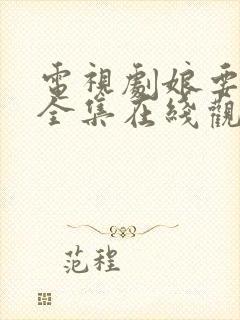 電視劇娘要
全集在綫觀
范程